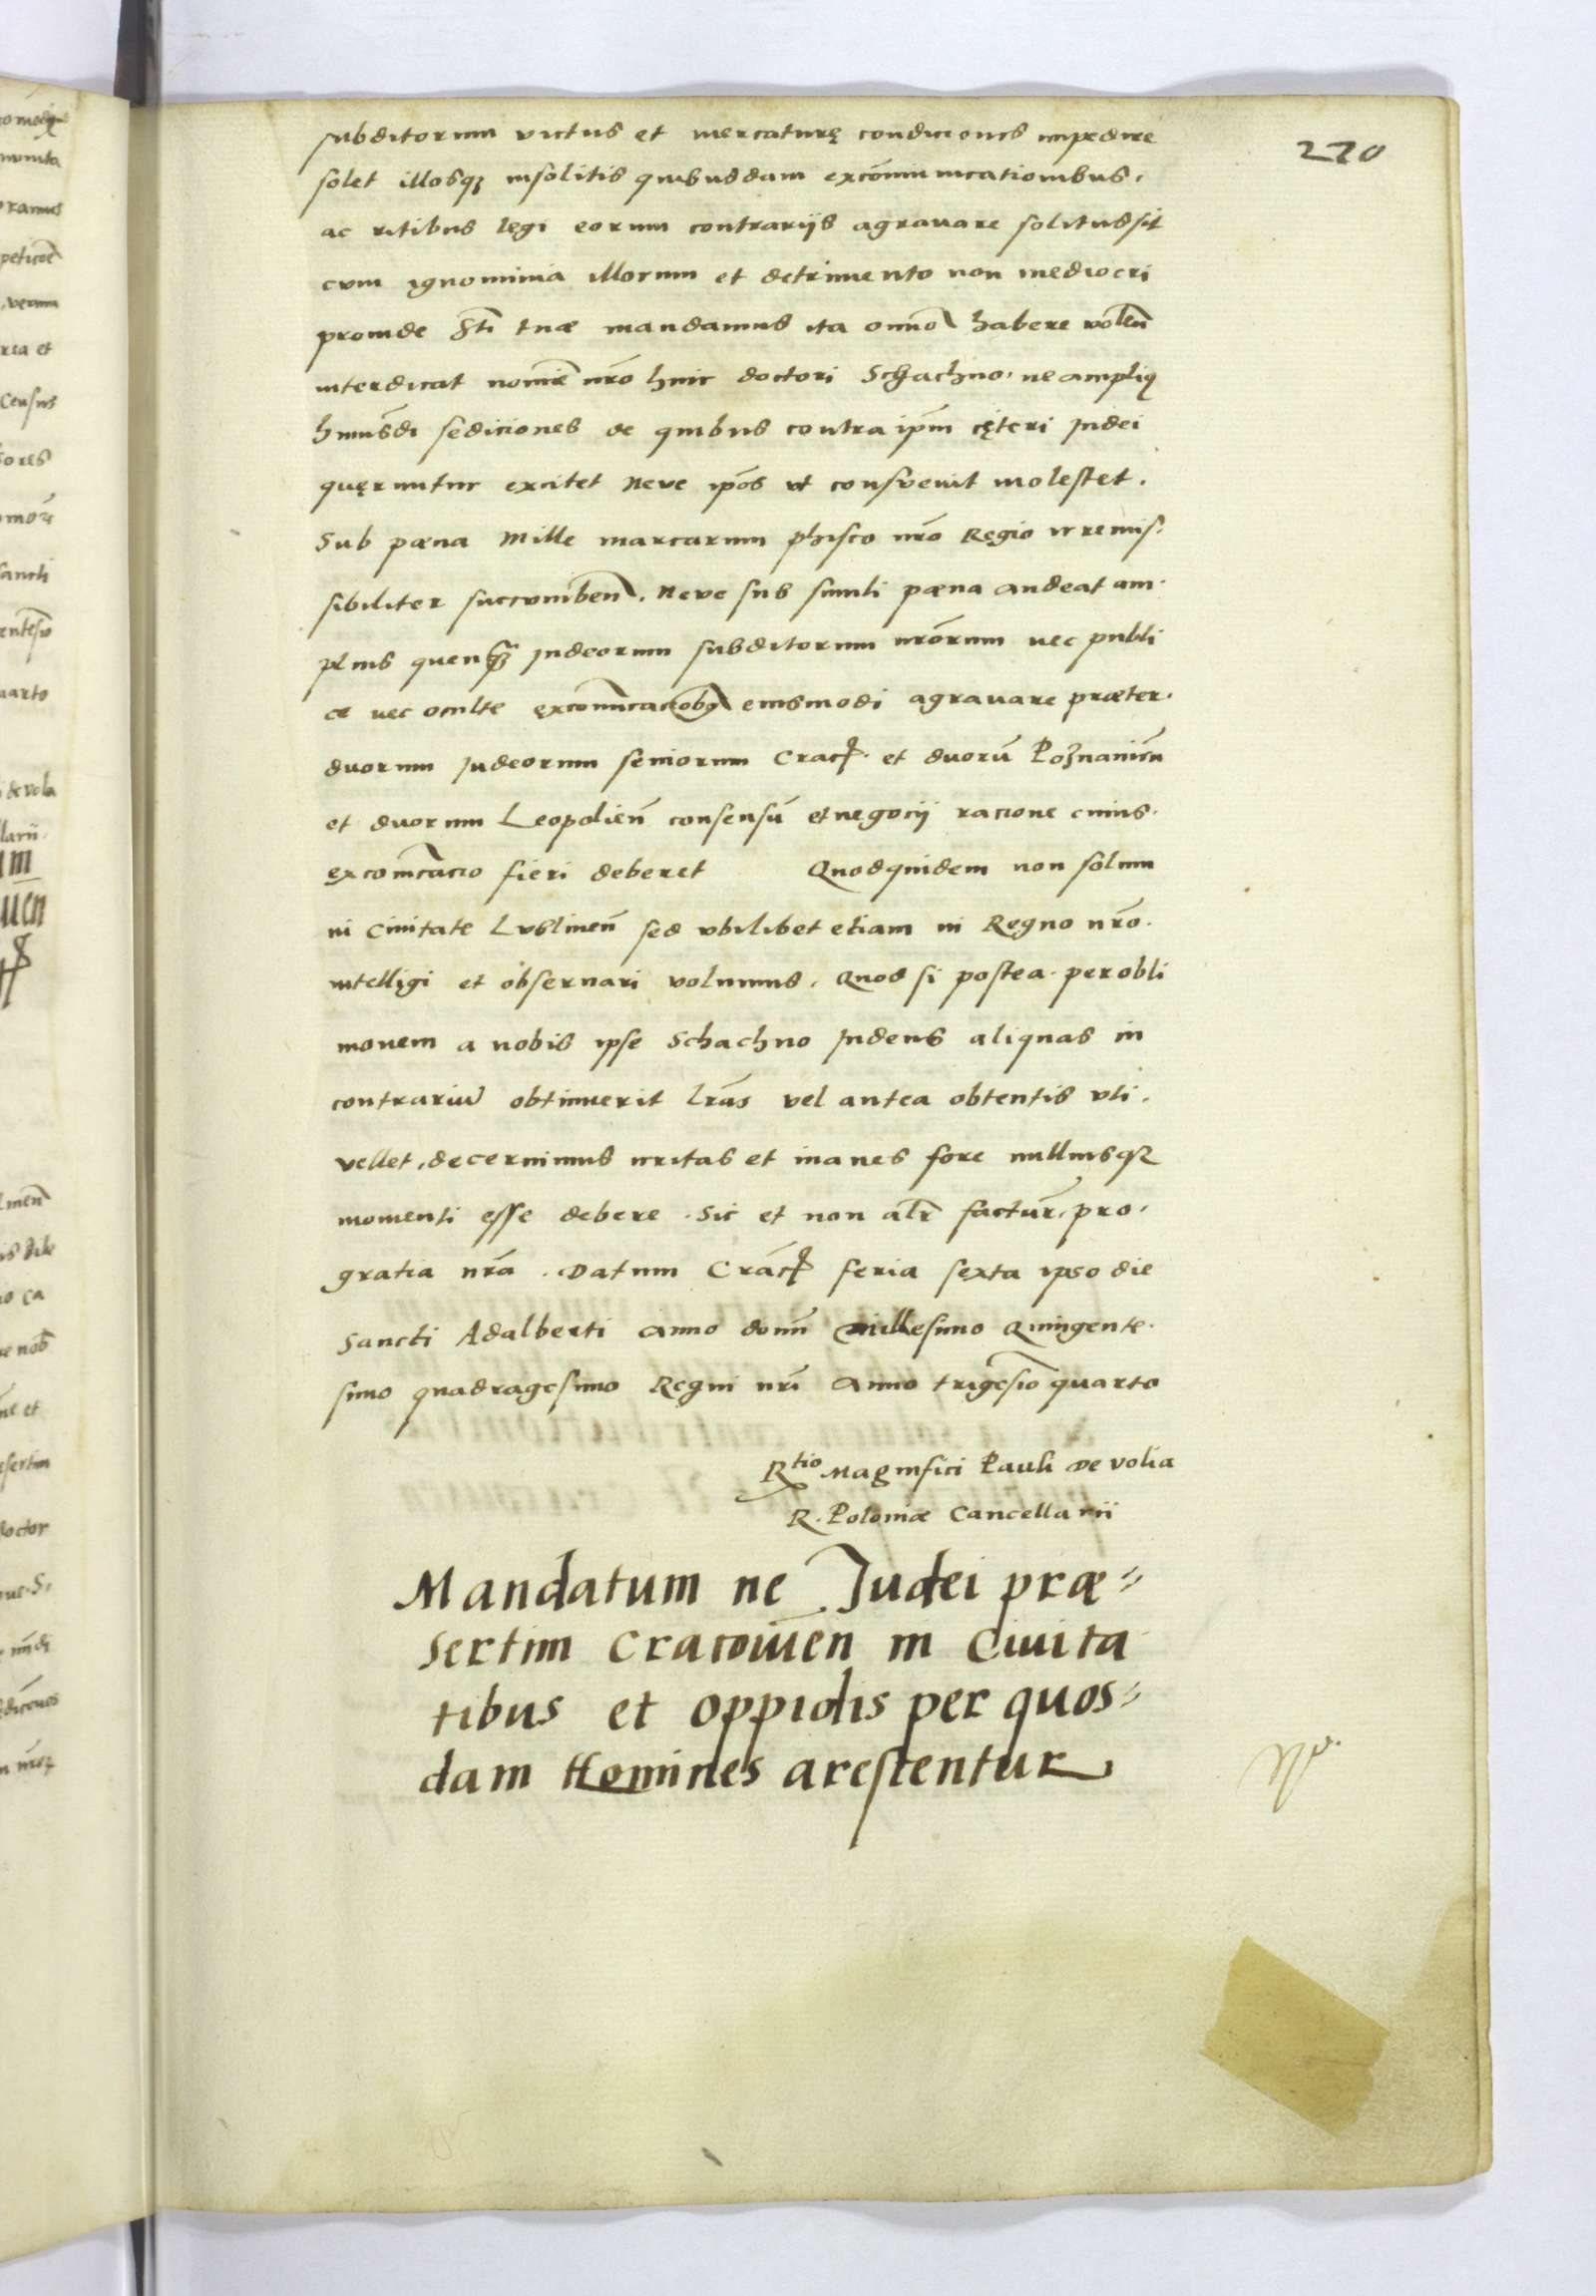 220
subditorum victus et mercaturę condiciones impedire
solet illosq; insolitis quibusdam excōmunicationibus,
ac ritibus legi eorum contrariis agravare solitus sit
cvm ignominia illorum et detrimento non mediocri
proinde Sti tuæ mandamus ita omno habere volen
interdicat nomīe nr̄o huic doctori Schachno. ne ampliꝰ
huiusdi sediciones de quibus contra ipm̄ cęteri Judei
queruntur excitet neve ipōs vt consvevit molestet.
Sub pœna mille marcarum phisco nr̄o Regio irremis-
sibiliter succumben. neve sub simili pœna audeat am-
plius quenq̄ȝ Judeorum subditorum nrōrum nec publi
ce nec oculte excomunicaciobꝰ eiusmodi agravare præter.
dvorum Judeorum seniorum Crac. et dvorū Poznanien
et dvorum Leopolien̄ consensū et negocii racione cuius.
excomcacio fieri deberet Quodquidem non solum
in Civitate Lvblinen̄ sed vbilibet etiam in Regno nr̄o.
intelligi et observari volumus. Quod si postea per obli
vionem a nobis ipse Schachno Judeus aliquas in
contrariū obtinuerit lr̄as vel antea obtentis vti.
vellet, decernimus irritas et inanes fore nulliusq;
momenti esse debere. Sic et non alr̄ factur. pro.
gratia nr̄a. Datum Crac feria sexta ipso die
Sancti Adalberti Anno domī millesimo Quingente-
simo quadragesimo Regni nr̄i Anno trigesīo quarto
Rtio Magnifici Pauli De Volia
R. Poloniæ Cancellarii
Mandatum ne Judei præ-
sertim Cracovien in Civita
tibus et oppidis per quos-
dam Homines arestentur